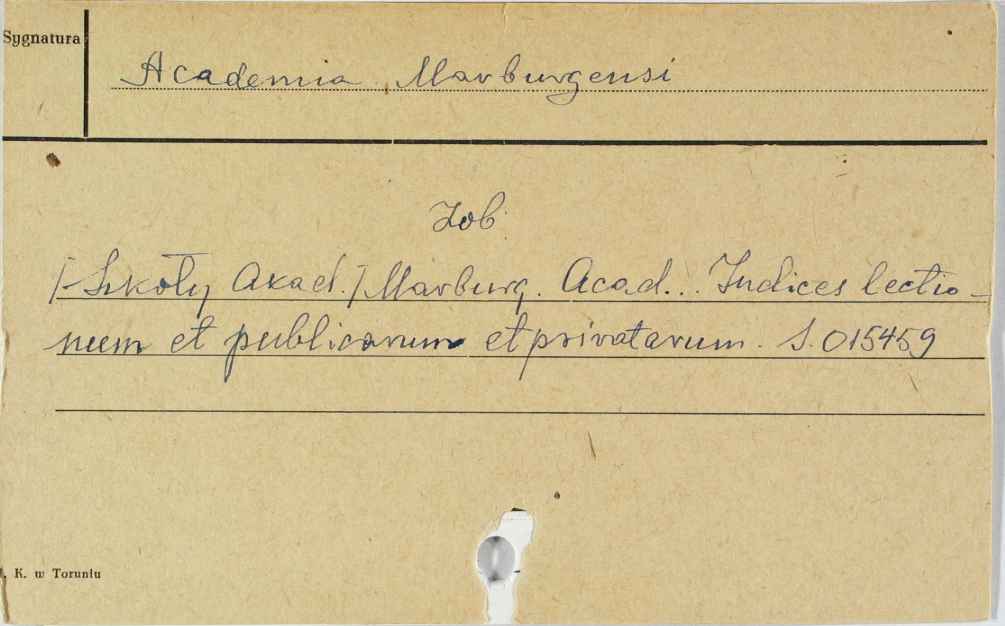 Sygnatura
Academia Marburgensi
Zob.
[-Szkoły Akad.] Marburg. Acad... Indices lectio-
num et publicarum et privatarum. S. 015459
. K. w Toruniu